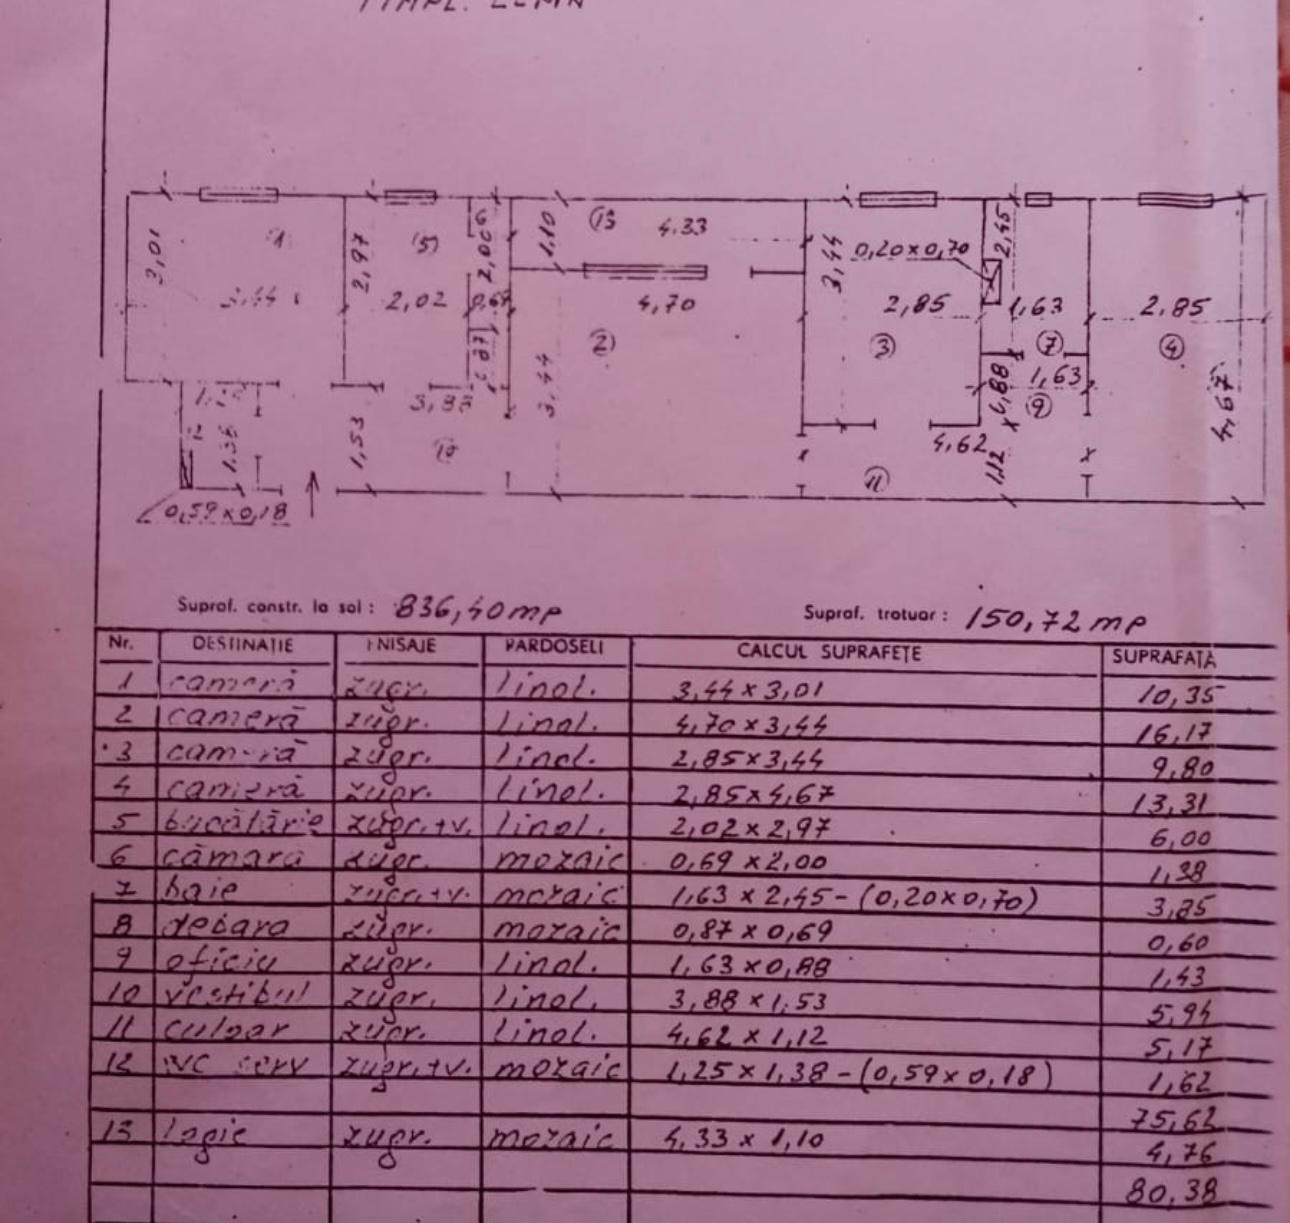 TIMPL. LEMN
3,01
1
3,44
2,97
5
2,02
6
2,00
0,69
0,87
1,10
13
4.33
4,70
2
3,44
3,44
0,20x0,70
2,85
3
2,45
1,63
7
2,85
4
4,67
1,25
12
1.38
3,88
1,53
10
0,59x0,18
4,62
11
1,63
0,88
9
1,12
Supraf. constr. la sol : 836,40 mp
Supraf. trotuar : 150,72 mp
Nr. DESTINAȚIE FINISAJE PARDOSELI CALCUL SUPRAFEȚE SUPRAFAȚA
1 cameră zugr. linol. 3,44 x 3,01 10,35
2 cameră zugr. linol. 4,70 x 3,44 16,17
3 cameră zugr. linol. 2,85x3,44 9,80
4 cameră zugr. linol. 2,85x4,67 13,31
5 bucătărie zugr.+v. linol. 2,02 x 2,97 6,00
6 cămară zugr. mozaic 0,69 x 2,00 1,38
7 baie zugr.+v. mozaic 1,63 x 2,45 - (0,20x0,70) 3,85
8 debara zugr. mozaic 0,87 x 0,69 0,60
9 oficiu zugr. linol. 1,63 x 0,88 1,43
10 vestibul zugr. linol. 3,88 x 1,53 5,94
11 culoar zugr. linol. 4,62 x 1,12 5,17
12 WC serv zugr.+v. mozaic 1,25 x 1,38 - (0,59x0,18) 1,62
75,62
13 logie zugr. mozaic 4,33 x 1,10 4,76
80,38